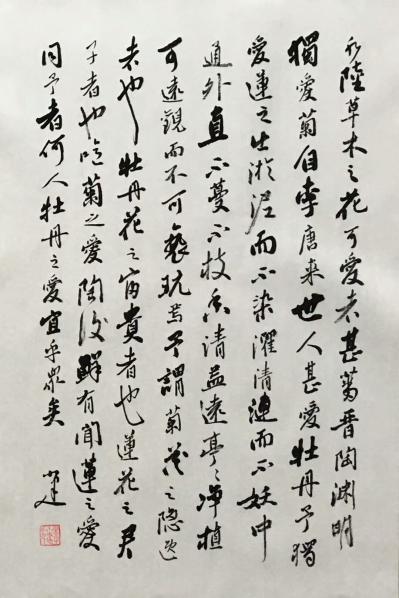 水陸草木之花可愛者甚蕃晉陶淵明
獨愛菊自李唐來世人甚愛牡丹予獨
愛蓮之出淤泥而不染濯清漣而不妖中
通外直不蔓不枝香清益遠亭〻淨植
可遠觀而不可褻玩焉予謂菊花之隱逸
者也牡丹花之富貴者也蓮花之君
子者也噫菊之愛陶後鮮有聞蓮之愛
同予者何人牡丹之愛宜乎眾矣